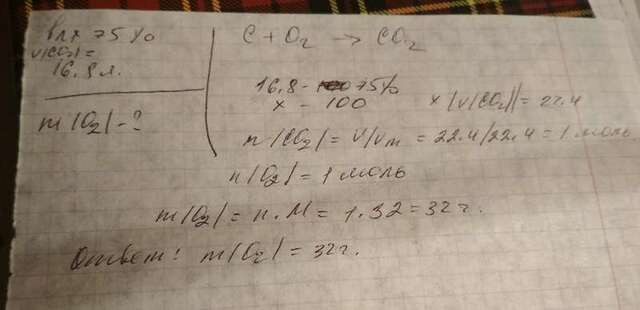 вых 75%
V(CO₂) =
16.8 л.
m(O₂) - ?
C + O₂ → CO₂
16,8 - 75%
x - 100
x (V(CO₂)) = 22.4
n(CO₂) = V/Vm = 22.4/22.4 = 1 моль
n(O₂) = 1 моль
m(O₂) = n.M = 1.32 = 32 г.
Ответ: m(O₂) = 32 г.